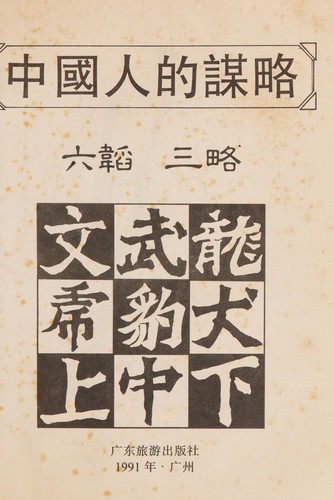 中國人的謀略
六韜 三略
文武龍
虎豹犬
上中下
广东旅游出版社
1991年·广州